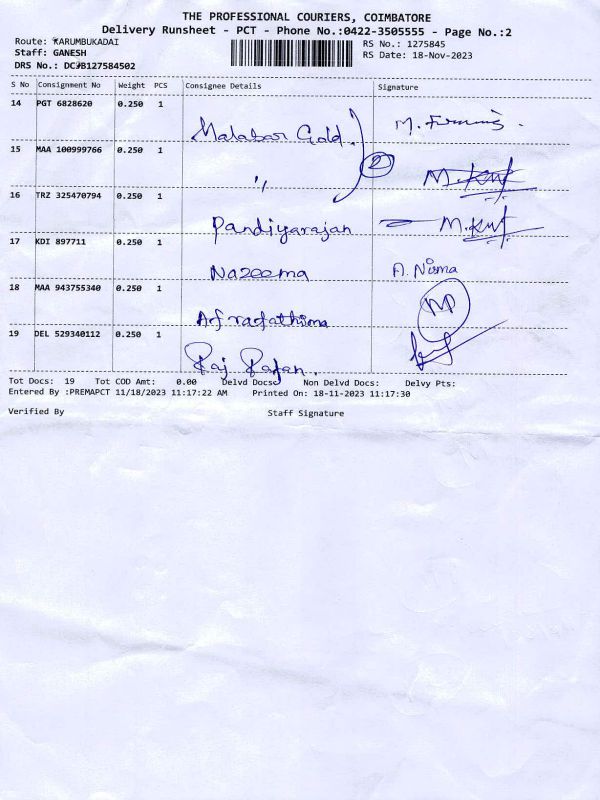 THE PROFESSIONAL COURIERS, COIMBATORE
Delivery Runsheet - PCT - Phone No.:0422-3505555 - Page No.:2
Route: KARUMBUKADAI
RS No.: 1275845
Staff: GANESH
RS Date: 18-Nov-2023
DRS No.: DC#B127584502
S No Consignment No Weight PCS Consignee Details Signature
14 PGT 6828620 0.250 1
Malabar Gold.
15 MAA 100999766 0.250 1
〃 2
16 TRZ 325470794 0.250 1
Pandiyarajan
17 KDI 897711 0.250 1
Nazeema A. Nisma
18 MAA 943755340 0.250 1
NP
19 DEL 529340112 0.250 1
Raj Rajan.
Tot Docs: 19 Tot COD Amt: 0.00 Delvd Docs: Non Delvd Docs: Delvy Pts:
Entered By :PREMAPCT 11/18/2023 11:17:22 AM Printed On: 18-11-2023 11:17:30
Verified By Staff Signature